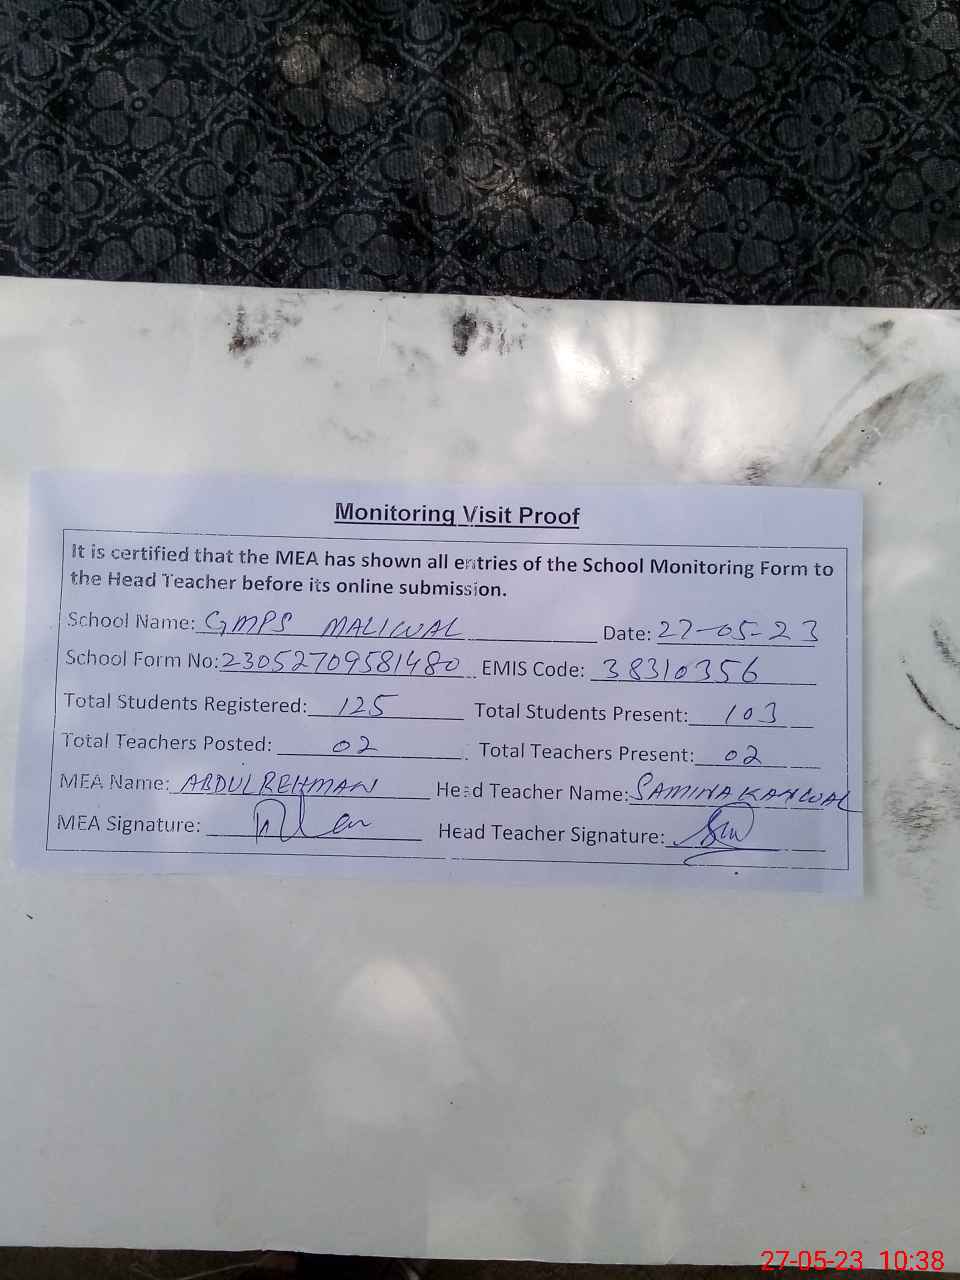 Monitoring Visit Proof
It is certified that the MEA has shown all entries of the School Monitoring Form to
the Head Teacher before its online submission.
School Name: GMPS MALIWAL Date: 27-05-23
School Form No: 23052709581480 EMIS Code: 38310356
Total Students Registered: 125 Total Students Present: 103
Total Teachers Posted: 02 Total Teachers Present: 02
MEA Name: ABDUL REHMAN Head Teacher Name: SAMINA KANWAL
MEA Signature: Head Teacher Signature:
27-05-23 10:38